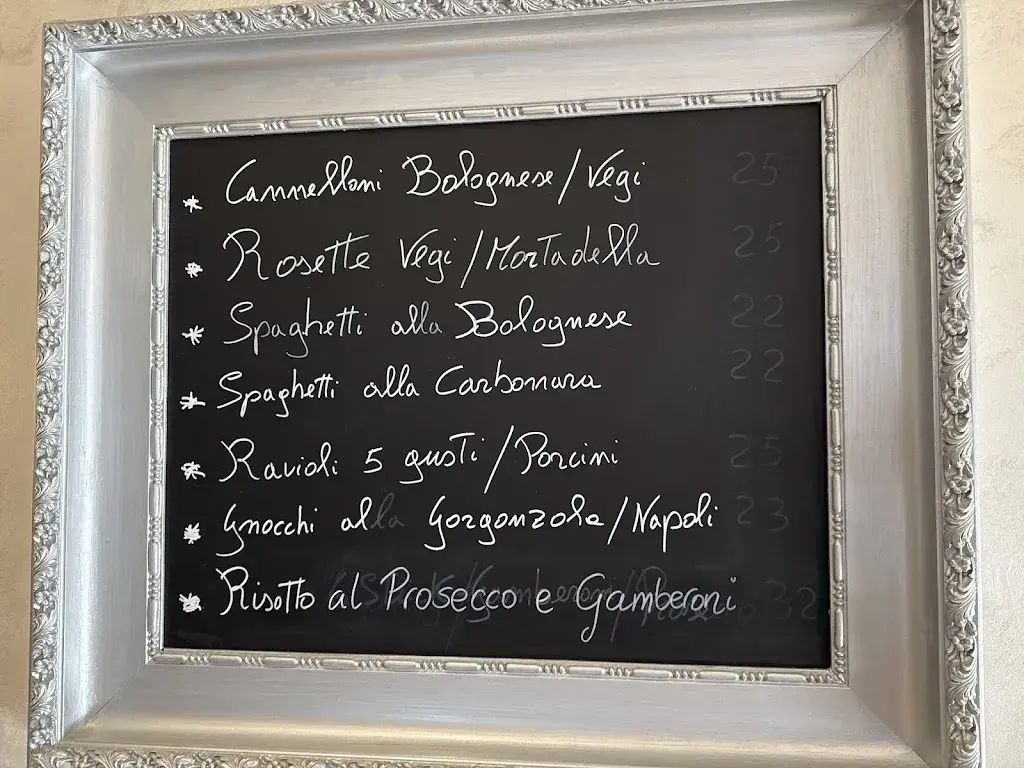 * Cannelloni Bolognese/Vegi 25
* Rosette Vegi/Mortadella 25
* Spaghetti alla Bolognese 22
* Spaghetti alla Carbonara 22
* Ravioli 5 gusti/Porcini 25
* Gnocchi alla Gorgonzola/Napoli 23
* Risotto al Prosecco e Gamberoni 32